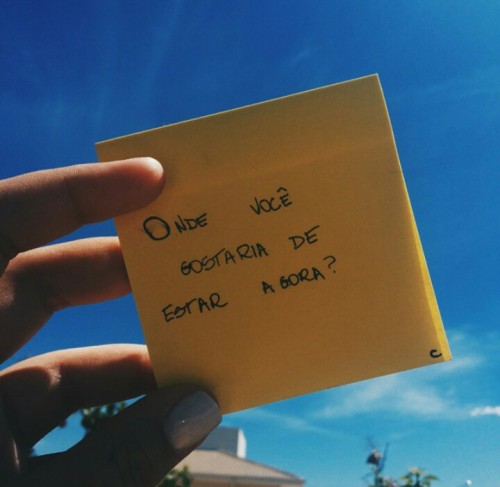 ONDE VOCÊ
GOSTARIA DE
ESTAR AGORA?
C